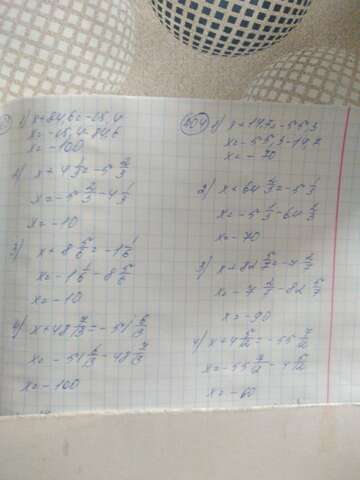 1) x+84,6=-15,4
x=-15,4-84,6
x=-100
2) x+4 1/3=-5 2/3
x=-5 2/3-4 1/3
x=-10
3) x+8 5/6=-1 1/6
x=-1 1/6-8 5/6
x=-10
4)
x=-100
204 1) x+14,7=-55,3
x=-55,3-14,7
x=-70
2) x+64 2/3=-5 1/3
x=-5 1/3-64 2/3
x=-70
3) x+82 5/7=-7 2/7
x=-7 2/7-82 5/7
x=-90
4) x+4 5/12=-55 7/12
x=-55 7/12-4 5/12
x=-60